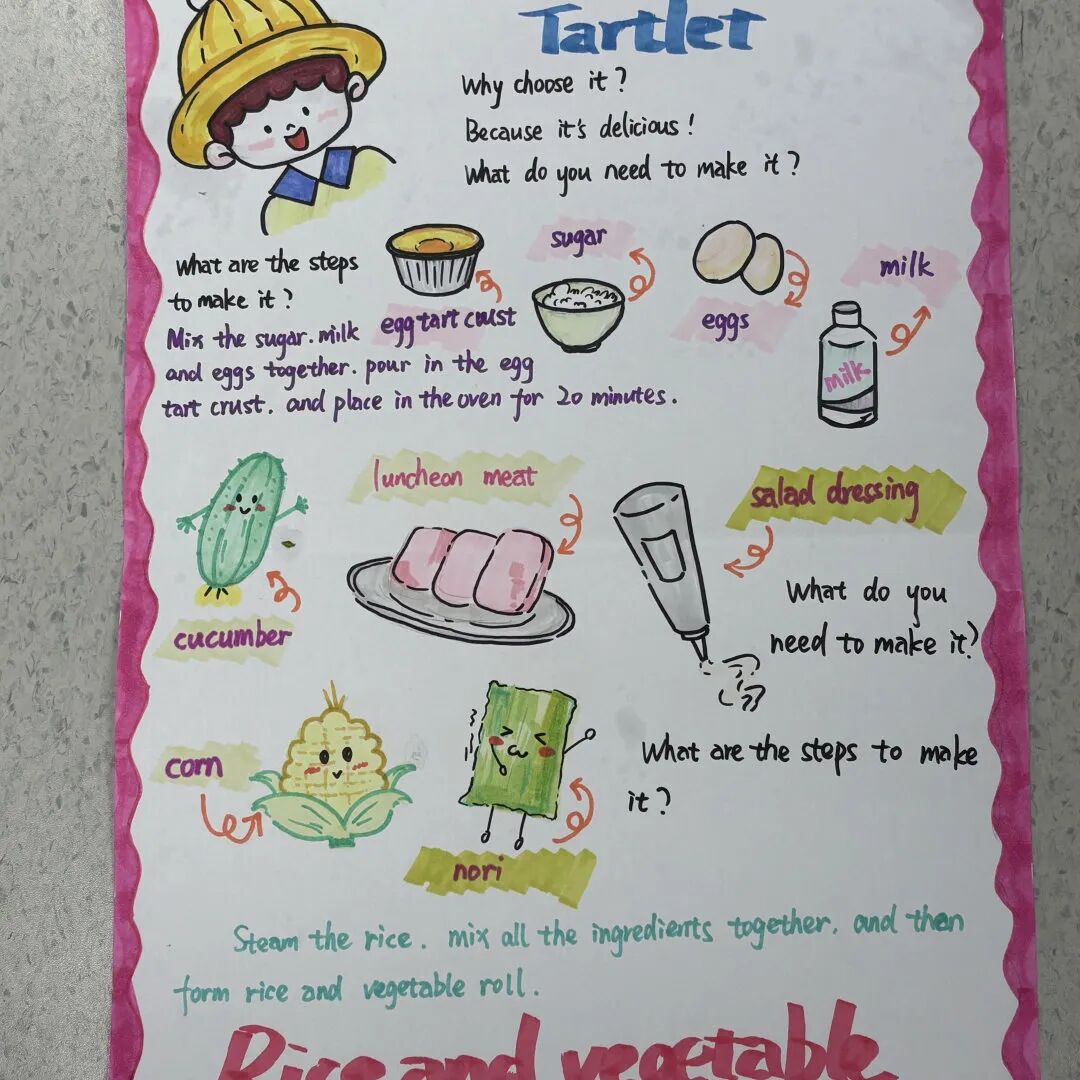 Tartlet
Why choose it?
Because it's delicious!
What do you need to make it?
What are the steps
to make it?
Mix the sugar. milk
and eggs together. pour in the egg
tart crust. and place in the oven for 20 minutes.
egg tart crust
sugar
eggs
milk
milk
cucumber
luncheon meat
salad dressing
What do you
need to make it?
corn
nori
What are the steps to make
it?
Steam the rice. mix all the ingredients together. and then
form rice and vegetable roll.
Rice and vegetable